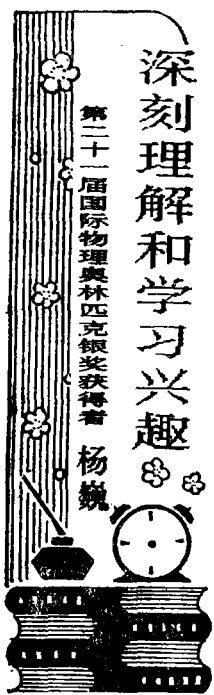 深刻理解和学习兴趣
第二十一届国际物理奥林匹克银奖获得者 杨巍